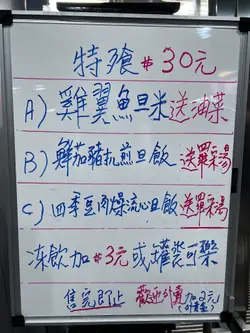 特飡 $30元
A) 雞翼魚旦米 送油菜
B) 鮮茄豬扒煎旦飯 送羅宋湯
C) 四季豆肉燥流心旦飯 送羅宋湯
冻飲加 $3元 或罐裝可樂
售完即止 歡迎外賣 加2元